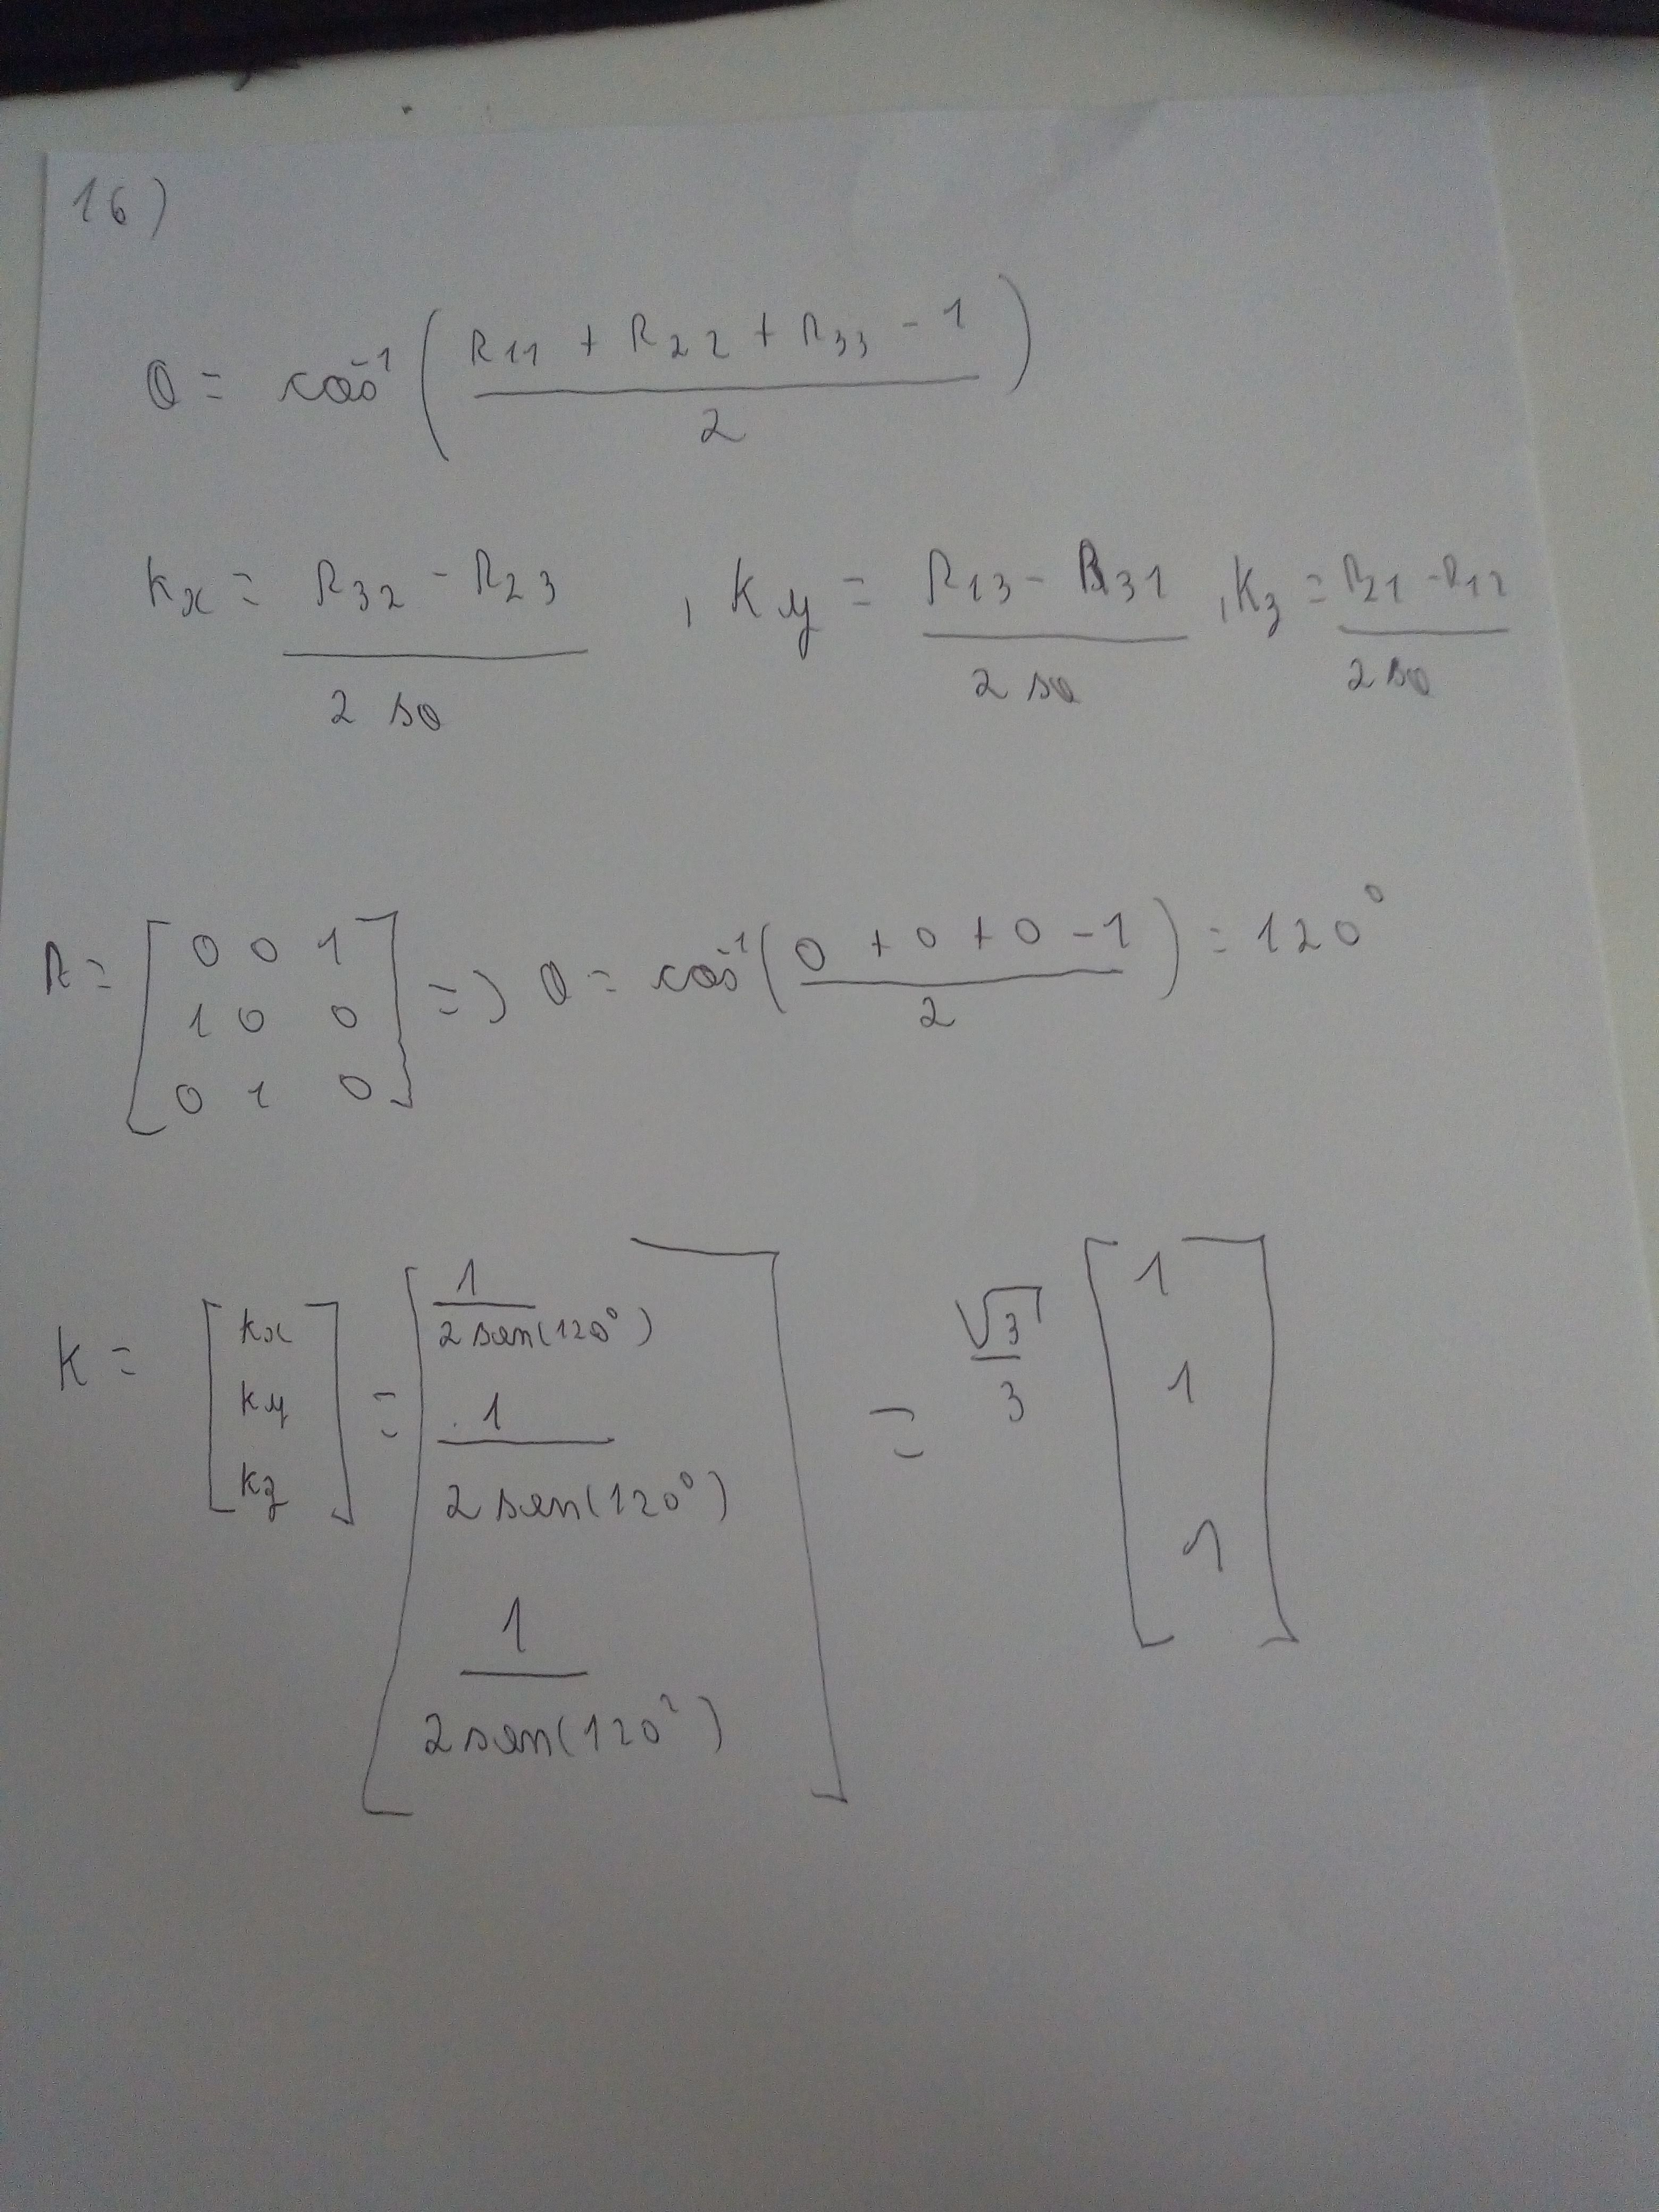 16)
θ = cos⁻¹ ( (R11 + R22 + R33 - 1) / 2 )
kx = (R32 - R23) / (2 sθ) , ky = (R13 - R31) / (2 sθ) , kz = (R21 - R12) / (2 sθ)
R = [ 0 0 1 ; 1 0 0 ; 0 1 0 ] => θ = cos⁻¹ ( (0 + 0 + 0 - 1) / 2 ) = 120°
k = [ kx ; ky ; kz ] = [ 1 / (2 sen(120°)) ; 1 / (2 sen(120°)) ; 1 / (2 sen(120°)) ] = √3 / 3 [ 1 ; 1 ; 1 ]